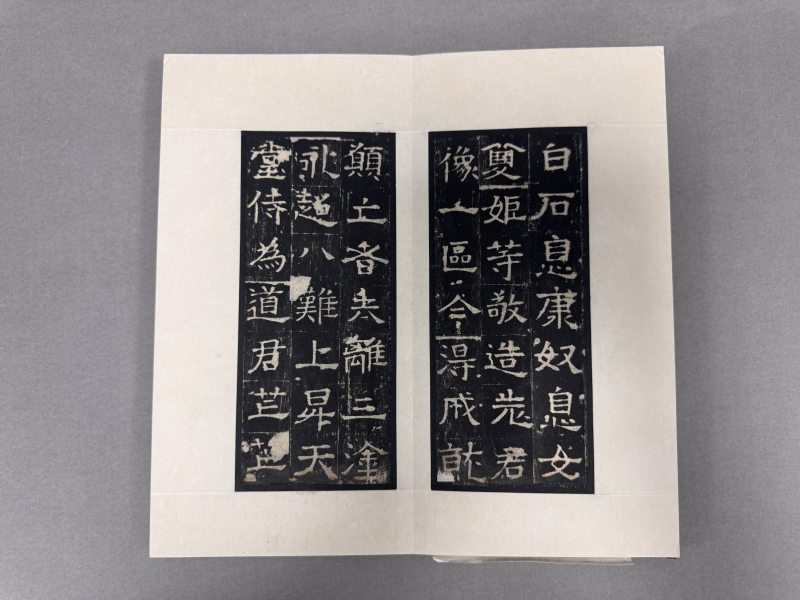 白石息康奴息女
姬等敬造老君
像一區今得成就
願亡者去離三塗
永超八難上昇天
堂侍為道君芒芒